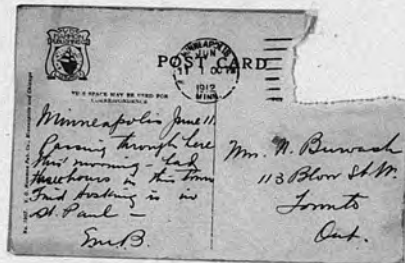 POST CARD
MINNEAPOLIS
JUN
11 1 00 PM
1912
MINN.
THIS SPACE MAY BE USED FOR
CORRESPONDENCE
Minneapolis June 11.
Passing through here
this morning - had
three hours in this town
Fred Hosking is in
St. Paul -
Em B.
Mrs. N. Burwash
113 Bloor St W.
Toronto
Ont.